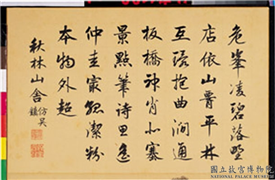 危峯凌碧落野
店依山胥平林
互抱曲澗通
板橋神肖小寒
景點筆詩里
仲圭潔粉
本物外超
秋林山舍
仿吳鎮
國立故宮博物院
NATIONAL PALACE MUSEUM